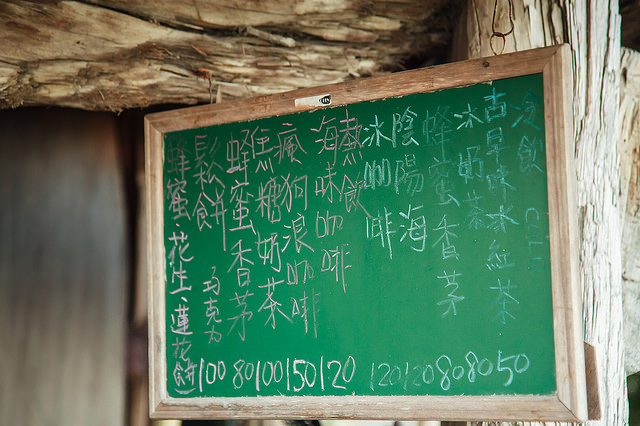 冷飲 COLD
古早味冰紅茶 50
冰奶茶 80
蜂蜜香茅 80
陰陽海 120
冰咖啡 120
熱飲
海味咖啡 120
瘋狗浪咖啡 150
焦糖奶茶 100
蜂蜜香茅 80
鬆餅 巧克力 100
蜂蜜、花生、蓮花